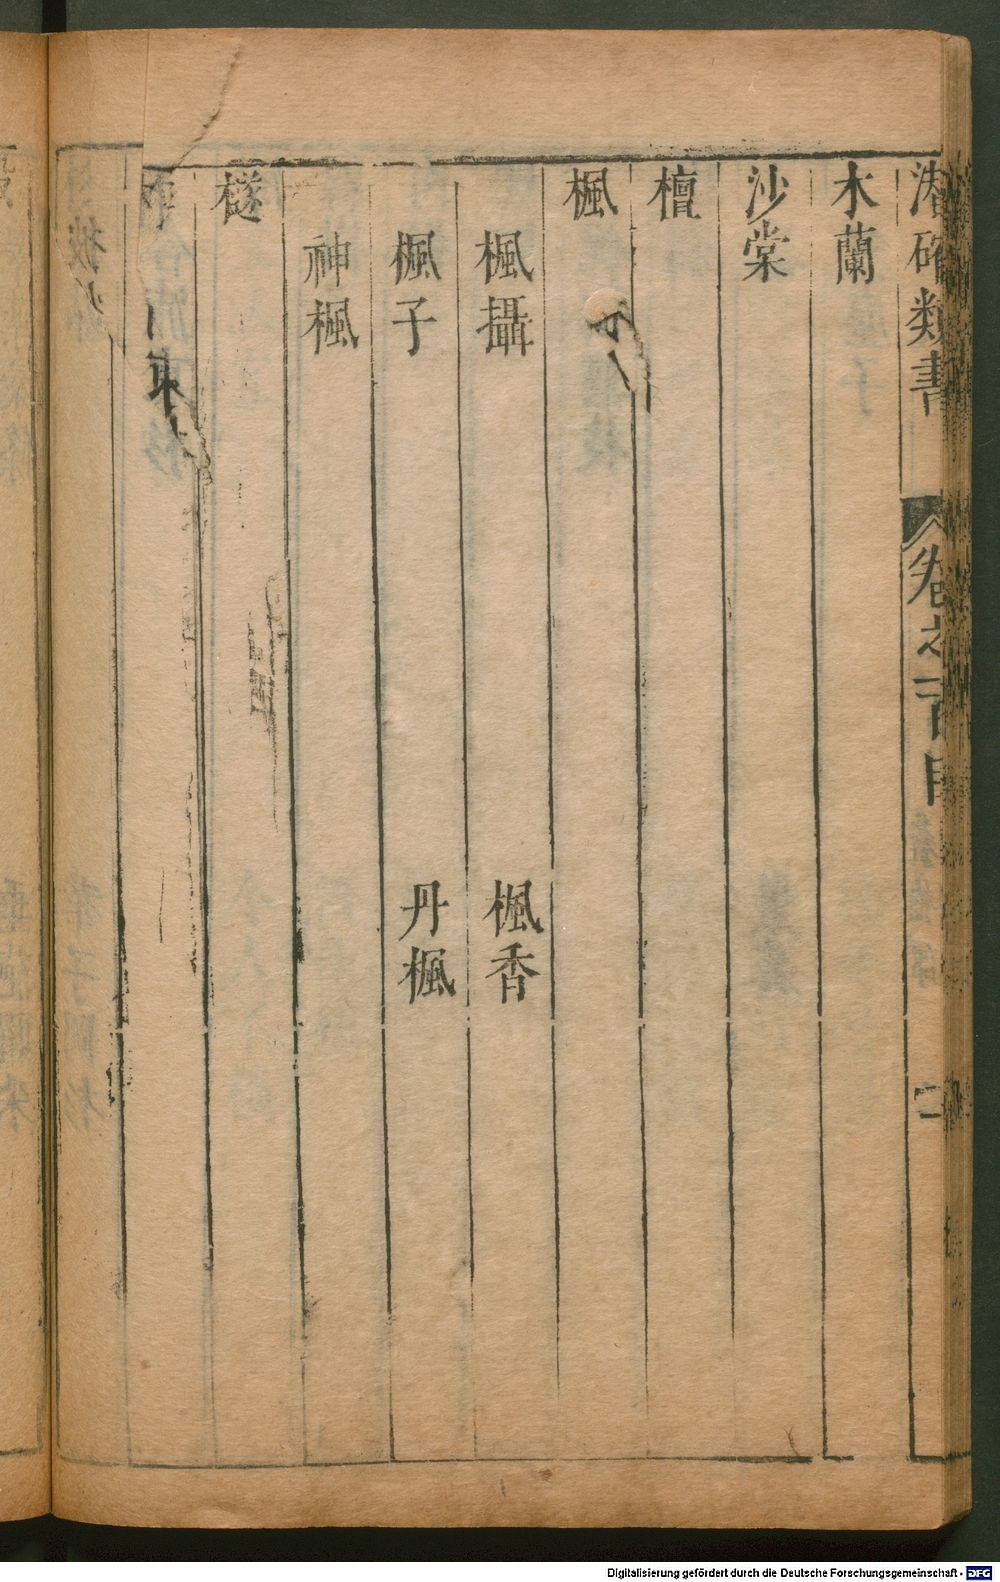 潛確類書 卷之一百目
木蘭
沙棠
檀
楓
楓攝 楓香
楓子 丹楓
神楓
檖
Digitalisierung gefördert durch die Deutsche Forschungsgemeinschaft - DFG